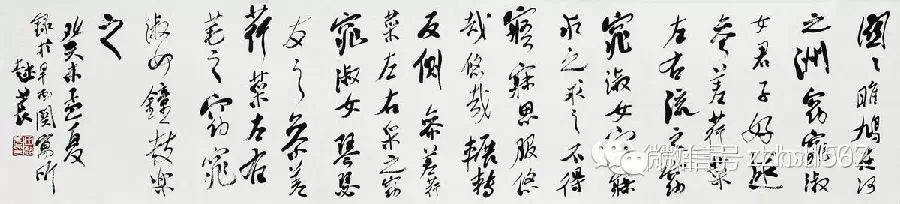 關〻雎鳩在河
之洲窈窕淑
女君子好逑
參差荇菜
左右流之窈
窕淑女寤寐
求之求之不得
寤寐思服悠
哉悠哉輾轉
反側參差荇
菜左右采之窈
窕淑女琴瑟
友之參差
荇菜左右
芼之窈窕
淑女鐘鼓樂
之
未孟夏
錄於寓所
微信号: zzhsd567